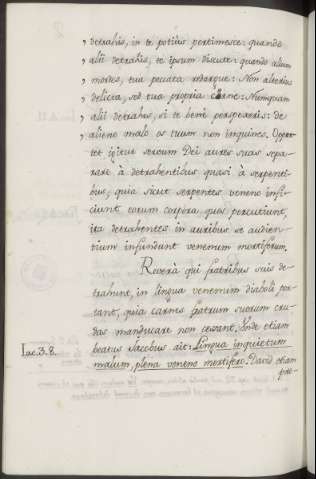 , detrahis, in te potius pertimesce: quando
, alii detrahis, te ipsum discute: quando alium
, mordes, tua peccata redargue: Non alterius
, delicta, sed tua propria cerne: Numquam
, alii detrahes, si te bene perspexeris: de
, alieno malo os tuum non inquines. Oppor-
tet igitur servum Dei aures suas sepa-
rare à detrahentibus quasi à serpenti-
bus, quia sicut serpentes veneno infi-
ciunt eorum corpora, quos percutiunt,
ita detrahentes in auribus se audien-
tium infundunt venenum mortiferum.
Reverà qui fratribus suis de-
trahunt, in lingua venenum diaboli por-
tant, quia carnes fratrum suorum cru-
das manducare non cessant. Unde etiam
Iac. 3. 8. beatus Iacobus ait: Lingua inquietum
malum, plena veneno mortifero. David etiam